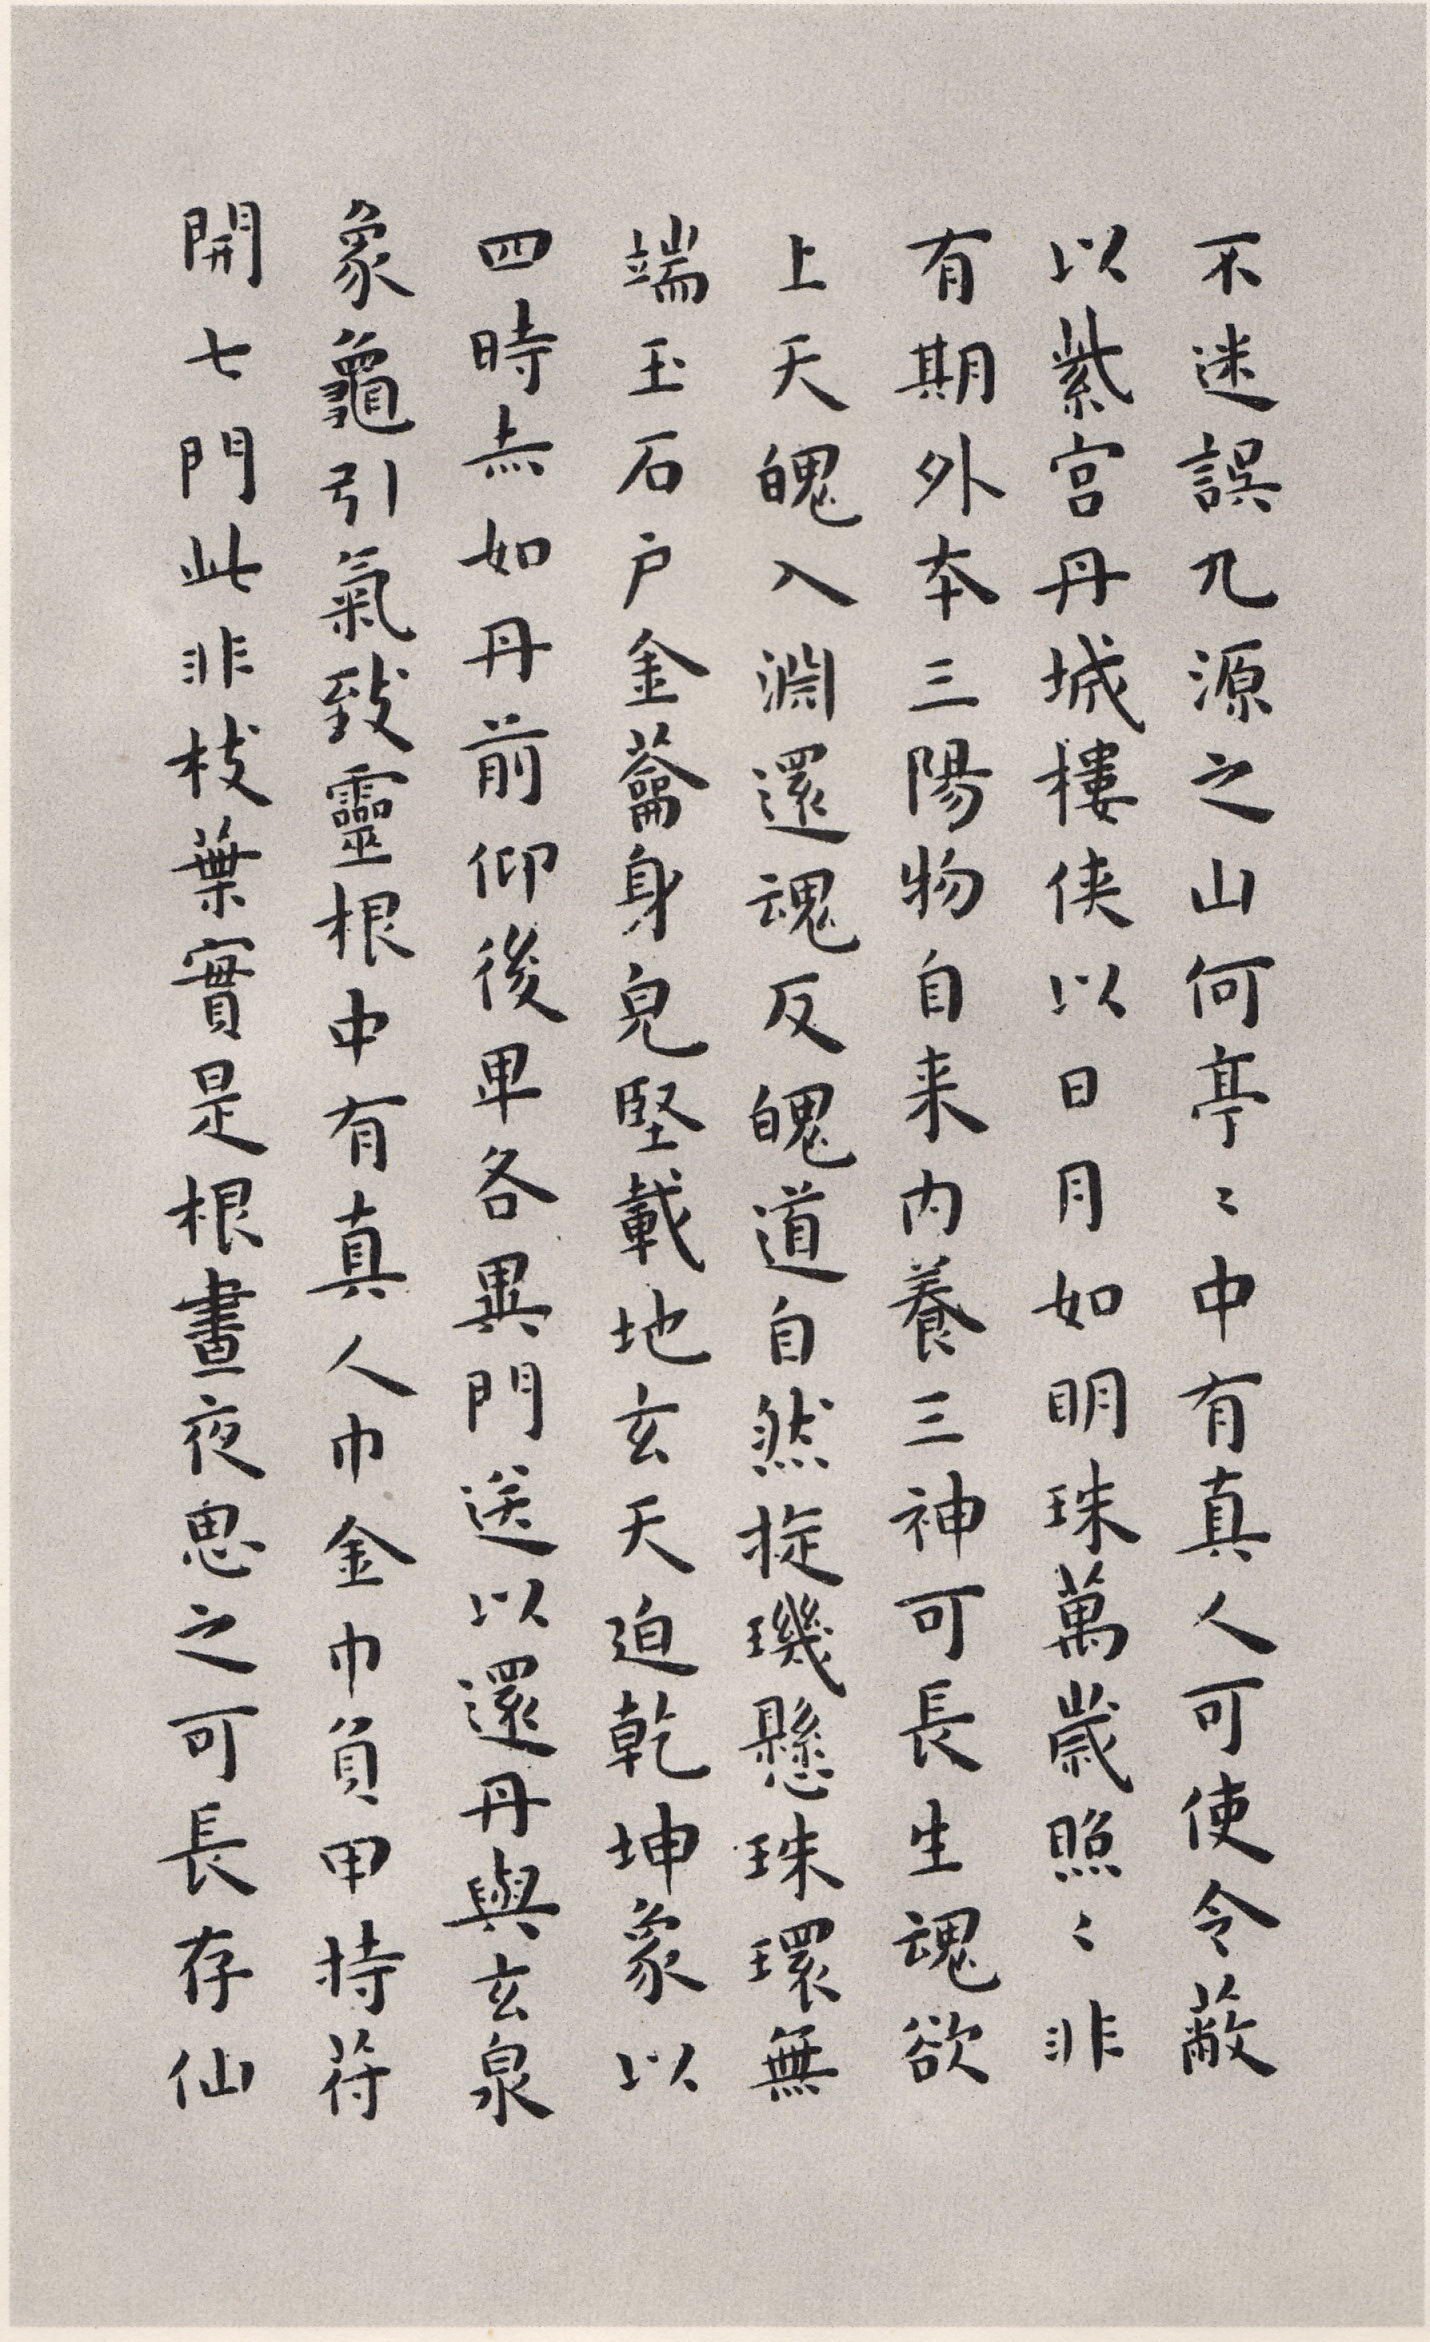 不迷誤九源之山何亭〻中有真人可使令蔽
以紫宫丹城樓俠以日月如明珠萬歲照〻非
有期外本三陽物自来内養三神可長生魂欲
上天魄入淵還魂反魄道自然㨔璣懸珠環無
端玉石戶金籥身皃堅載地玄天迫乾坤象以
四時赤如丹前仰後卑各異門送以還丹與玄泉
象龜引氣致靈根中有真人巾金巾負甲持苻
開七門此非枝葉實是根晝夜思之可長存仙